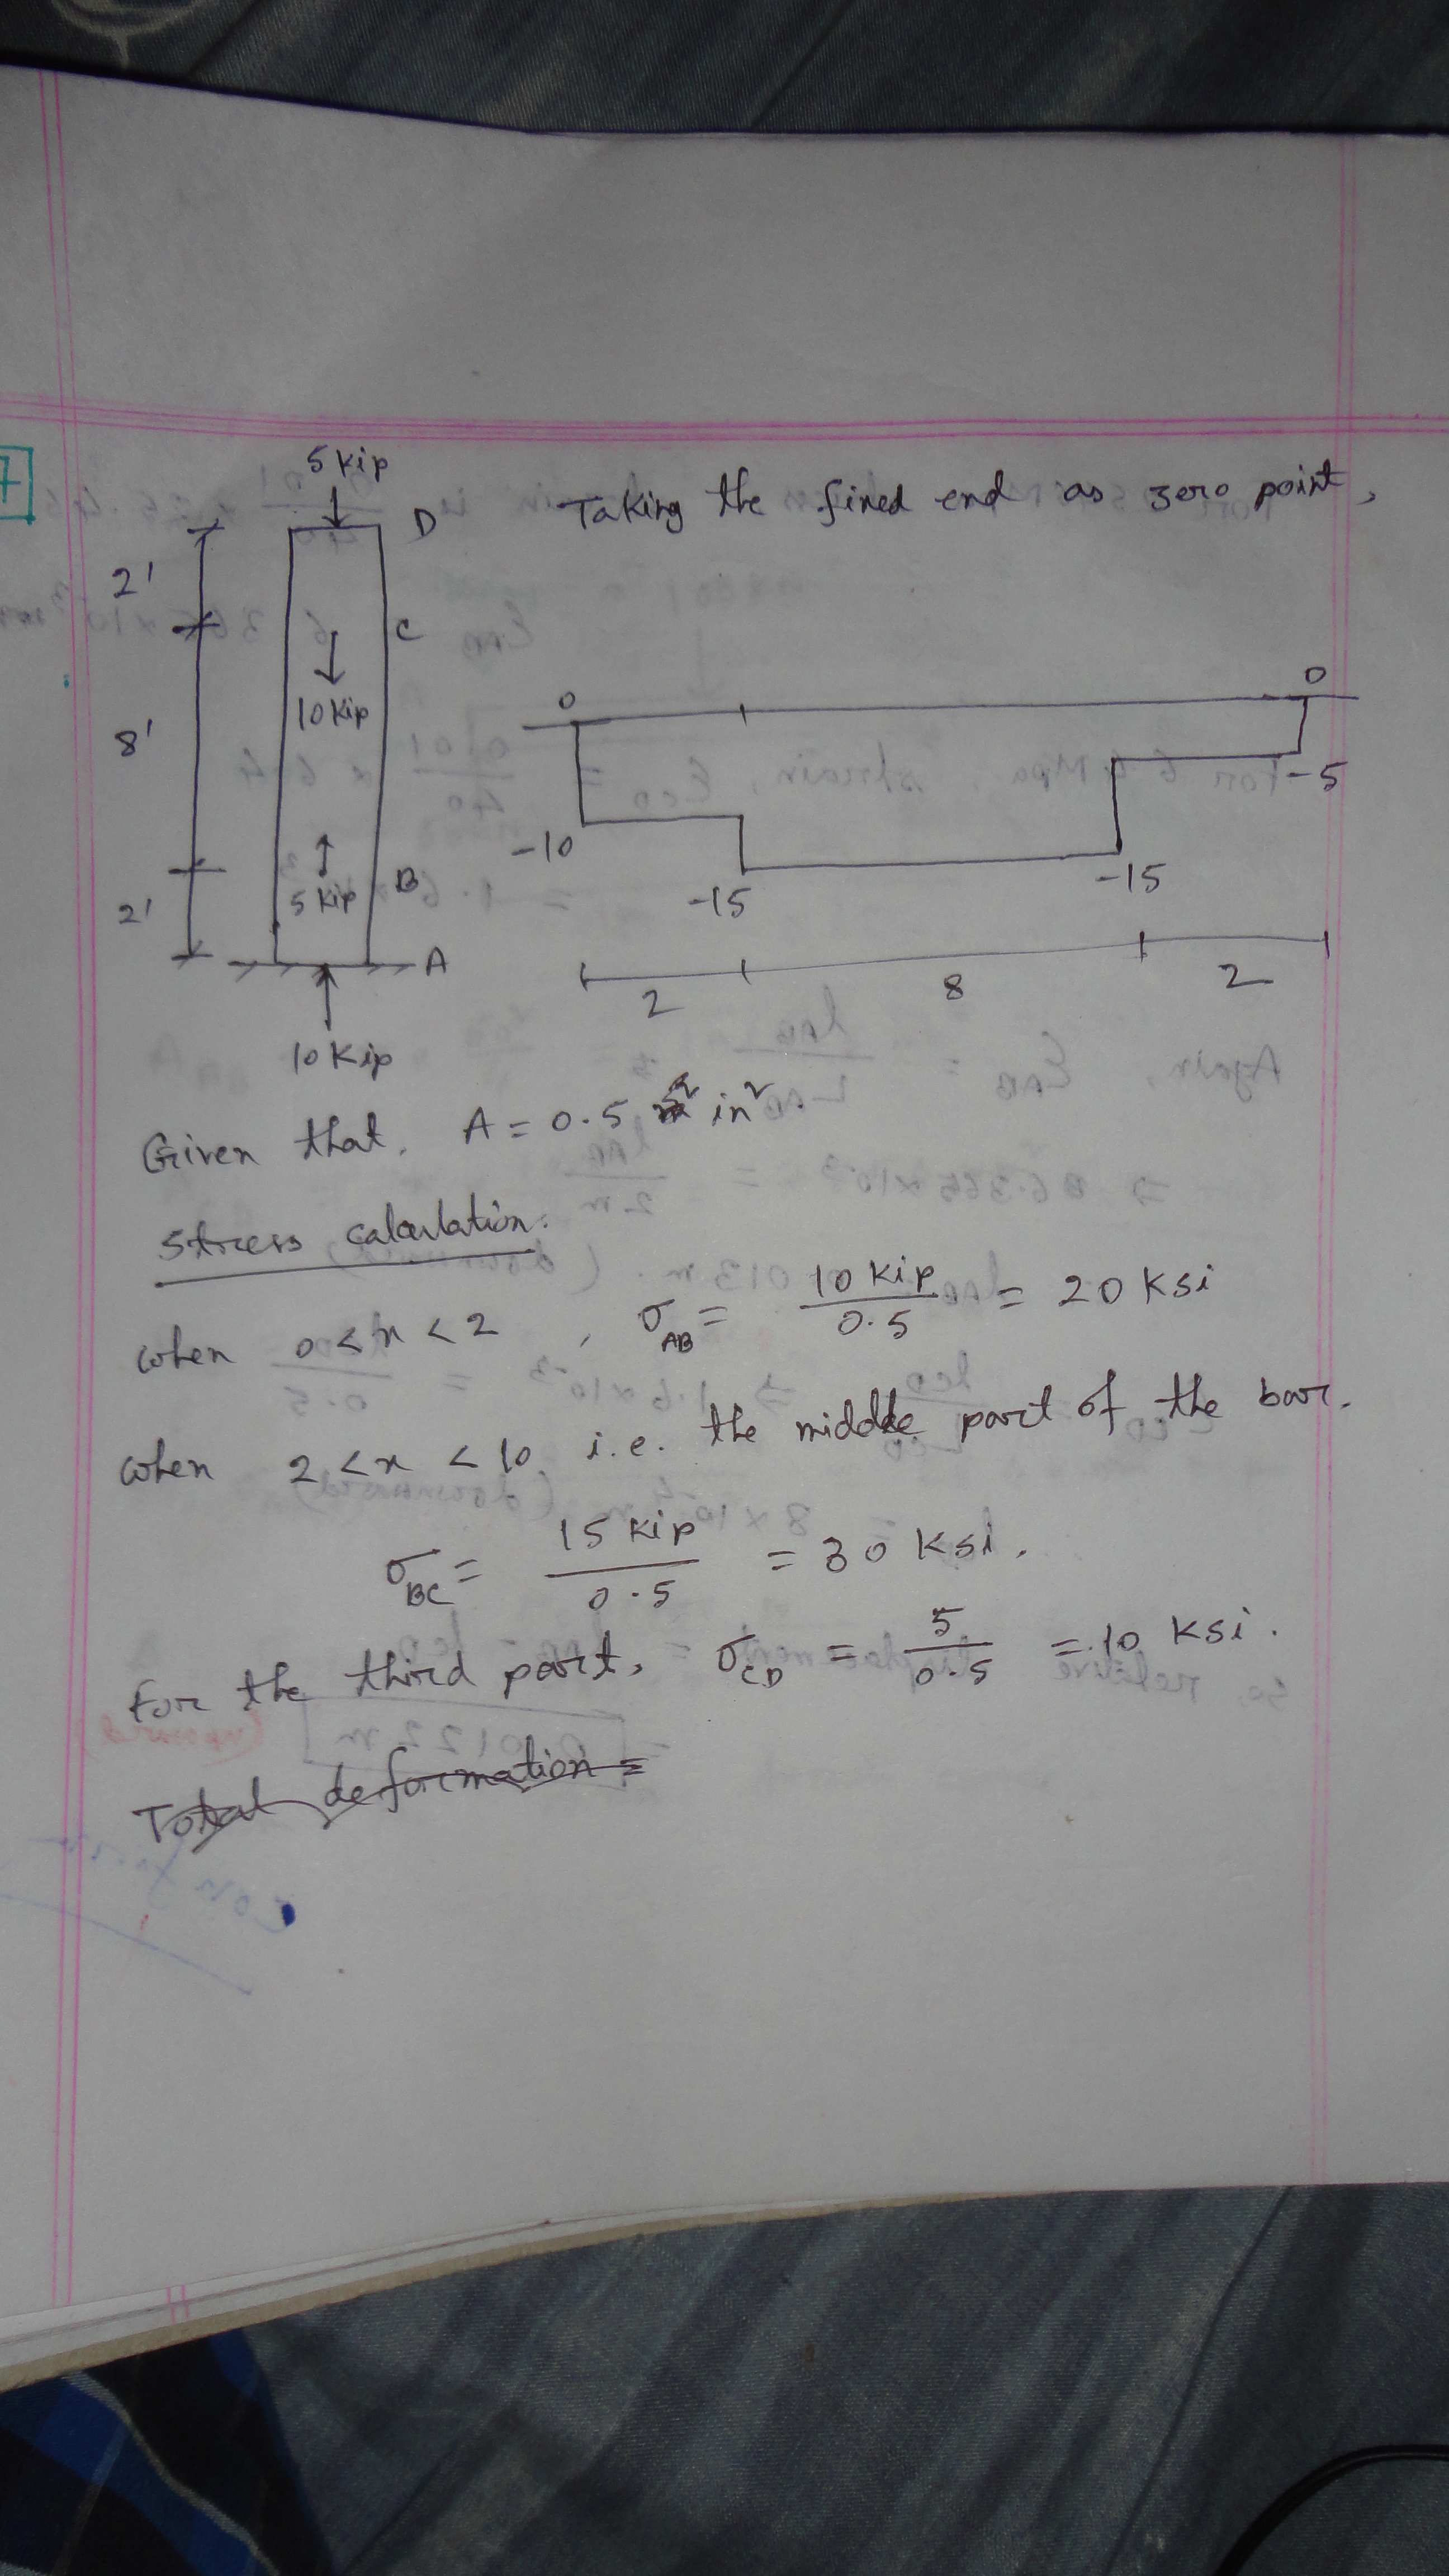 7
5 kip
D
Taking the fixed end as zero point,
2'
C
10 kip
8'
0
0
-5
-10
-15
-15
B
5 kip
2'
A
2
8
2
10 Kip
Given that, A = 0.5 in²
Stress calculation:
when 0 < x < 2, σAB = 10 kip / 0.5 = 20 ksi
when 2 < x < 10 i.e. the middle part of the bar.
σBC = 15 kip / 0.5 = 30 ksi.
For the third part, σCD = 5 / 0.5 = 10 ksi.
Total deformation =